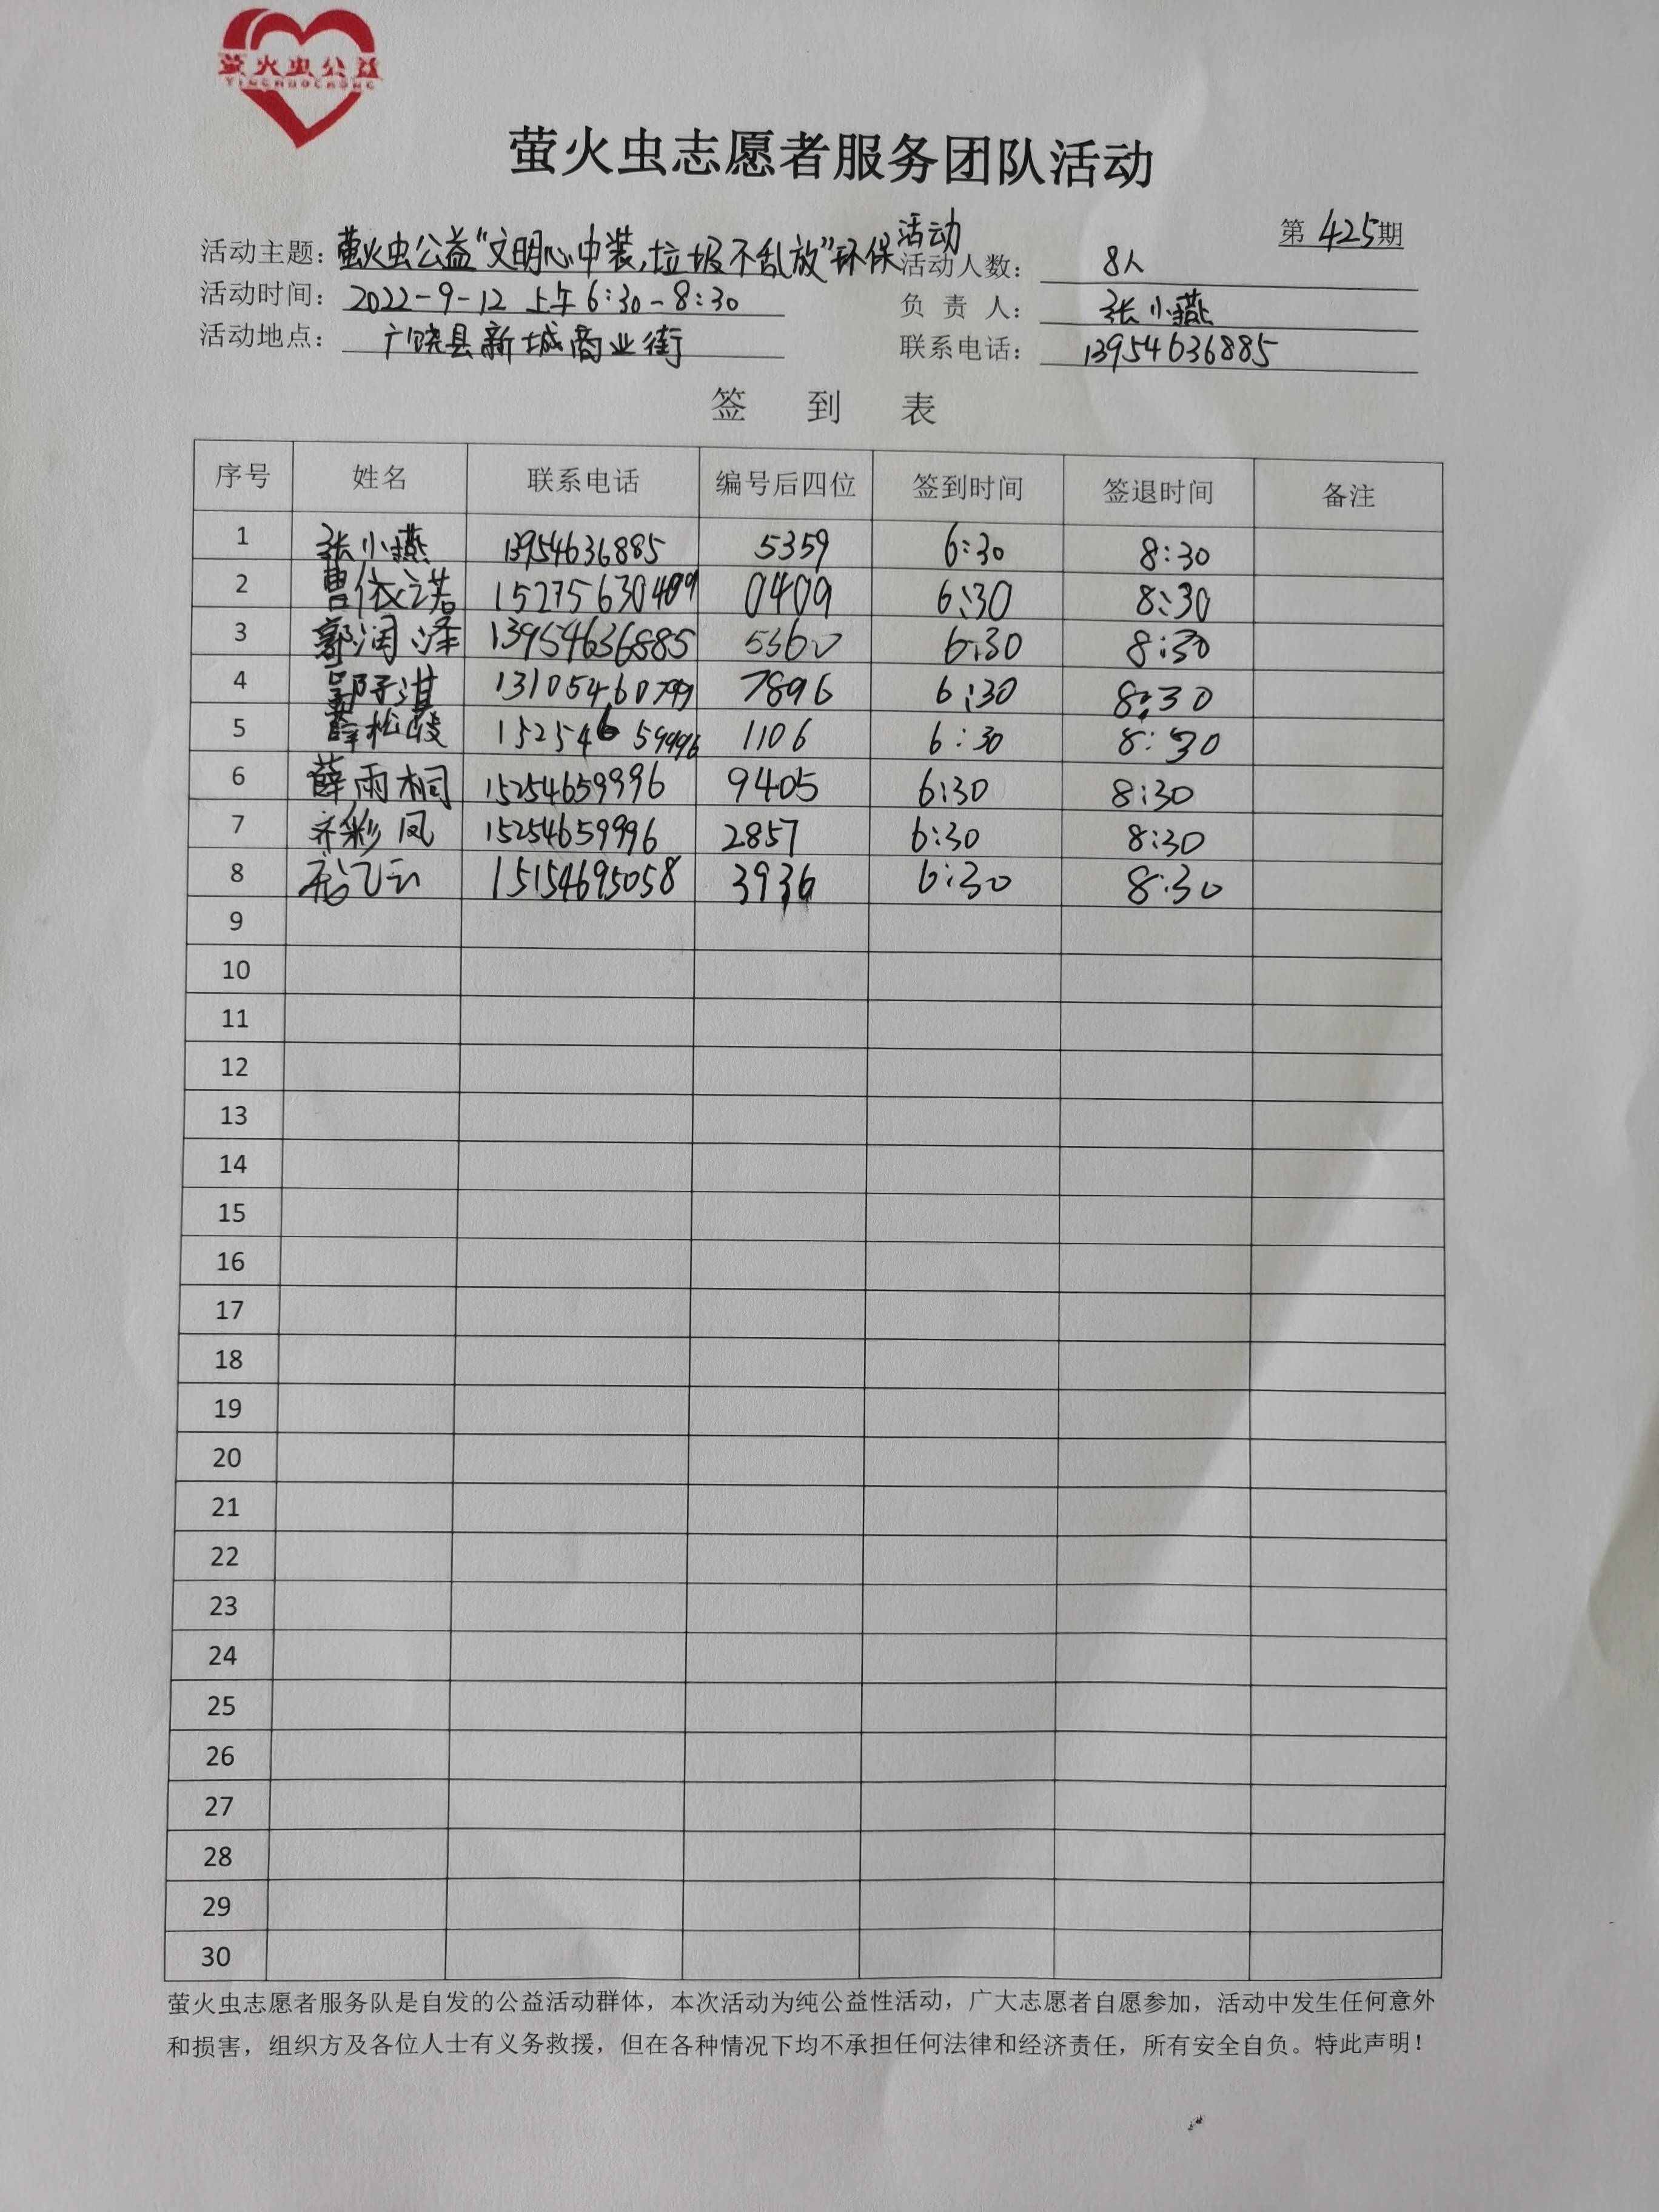 萤火虫公益
YINGHUOCHONG
萤火虫志愿者服务团队活动
第 425 期
活动主题：萤火虫公益“文明心中装，垃圾不乱放”环保活动
活动人数： 8人
活动时间： 2022-9-12 上午 6:30-8:30
负 责 人： 张小燕
活动地点： 广饶县新城商业街
联系电话： 13954636885
签 到 表
序号 姓名 联系电话 编号后四位 签到时间 签退时间 备注
1 张小燕 13954636885 5359 6:30 8:30
2 曹依诺 15275630409 0409 6:30 8:30
3 郭润泽 13954636885 5360 6:30 8:30
4 郭子淇 13105460799 7896 6:30 8:30
5 薛松 15254659996 1106 6:30 8:30
6 薛雨桐 15254659996 9405 6:30 8:30
7 齐彩凤 15254659996 2857 6:30 8:30
8 飞云 15154695058 3936 6:30 8:30
9
10
11
12
13
14
15
16
17
18
19
20
21
22
23
24
25
26
27
28
29
30
萤火虫志愿者服务队是自发的公益活动群体，本次活动为纯公益性活动，广大志愿者自愿参加，活动中发生任何意外
和损害，组织方及各位人士有义务救援，但在各种情况下均不承担任何法律和经济责任，所有安全自负。特此声明！